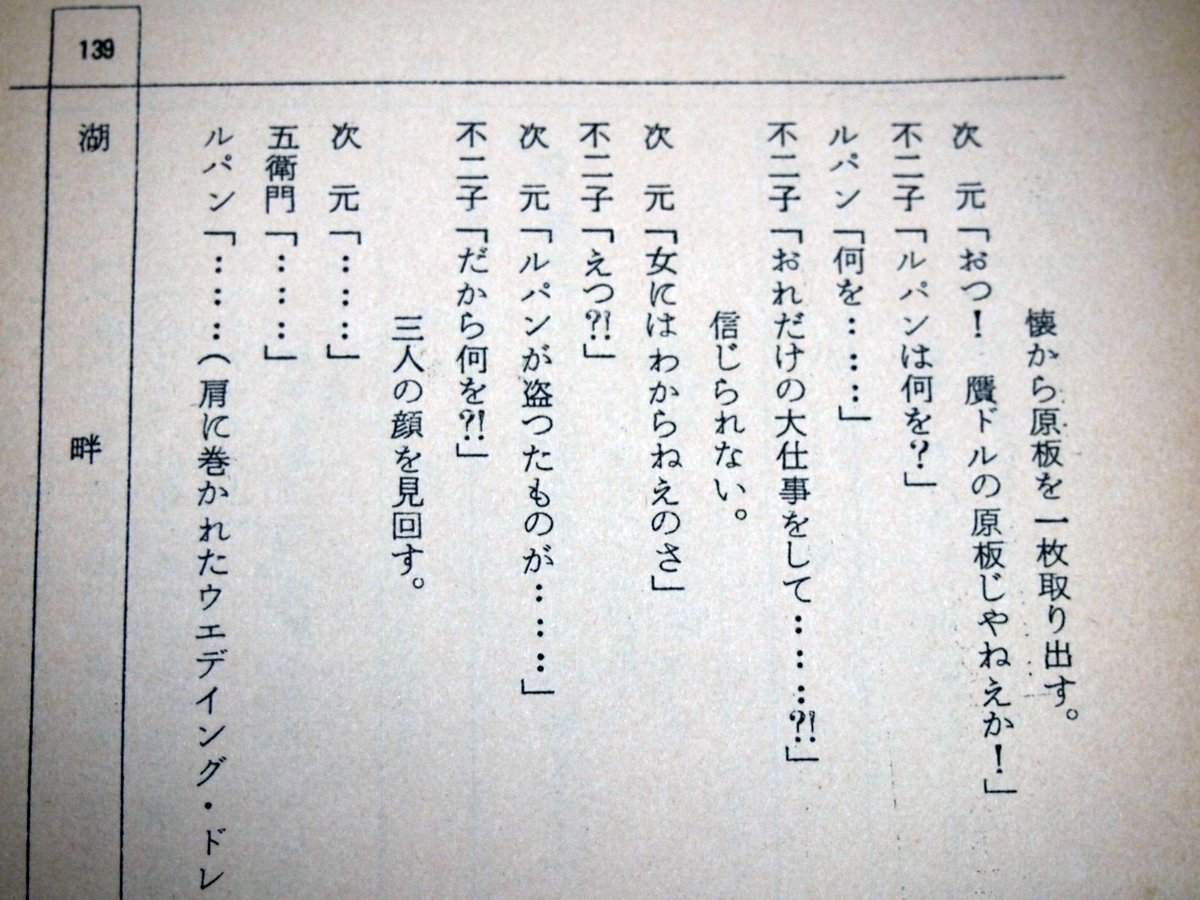 懐から原板を一枚取り出す。
次　元「おつ！　贋ドルの原板じやねえか！」
不二子「ルパンは何を？」
ルパン「何を………」
不二子「おれだけの大仕事をして………?!」
信じられない。
次　元「女にはわからねえのさ」
不二子「えつ?!」
次　元「ルパンが盗つたものが………」
不二子「だから何を?!」
三人の顔を見回す。
次　元「………」
五衛門「………」
ルパン「………(肩に巻かれたウエデイング・ドレ
139
湖　畔